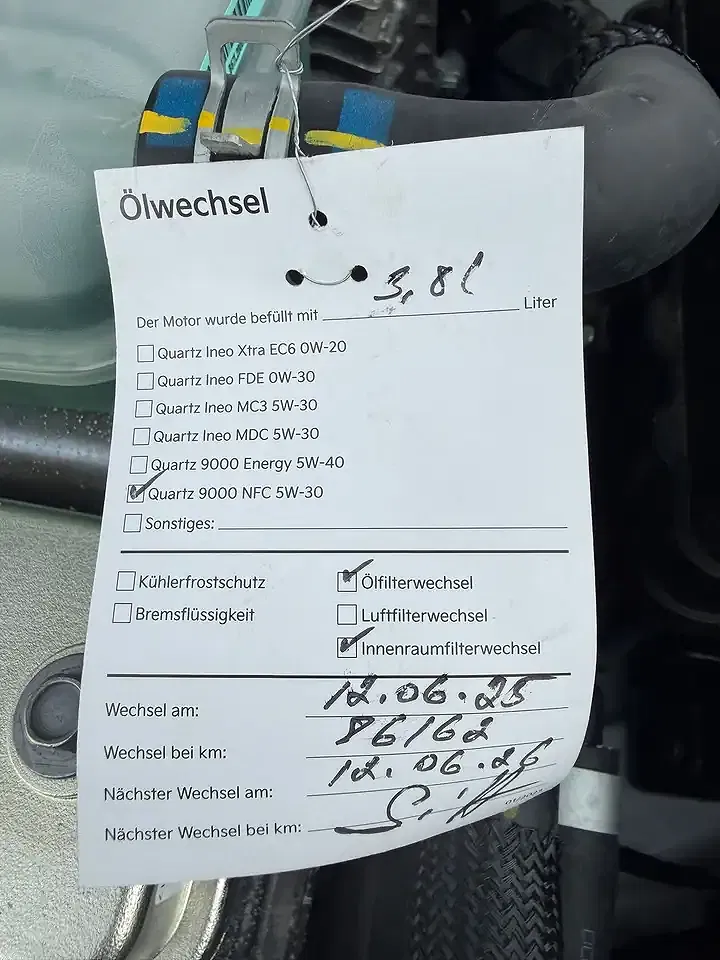 Ölwechsel
Der Motor wurde befüllt mit 3,8 l Liter
Quartz Ineo Xtra EC6 0W-20
Quartz Ineo FDE 0W-30
Quartz Ineo MC3 5W-30
Quartz Ineo MDC 5W-30
Quartz 9000 Energy 5W-40
Quartz 9000 NFC 5W-30
Sonstiges:
Kühlerfrostschutz Ölfilterwechsel
Bremsflüssigkeit Luftfilterwechsel
Innenraumfilterwechsel
Wechsel am: 12.06.25
Wechsel bei km: 86162
Nächster Wechsel am: 12.06.26
Nächster Wechsel bei km: